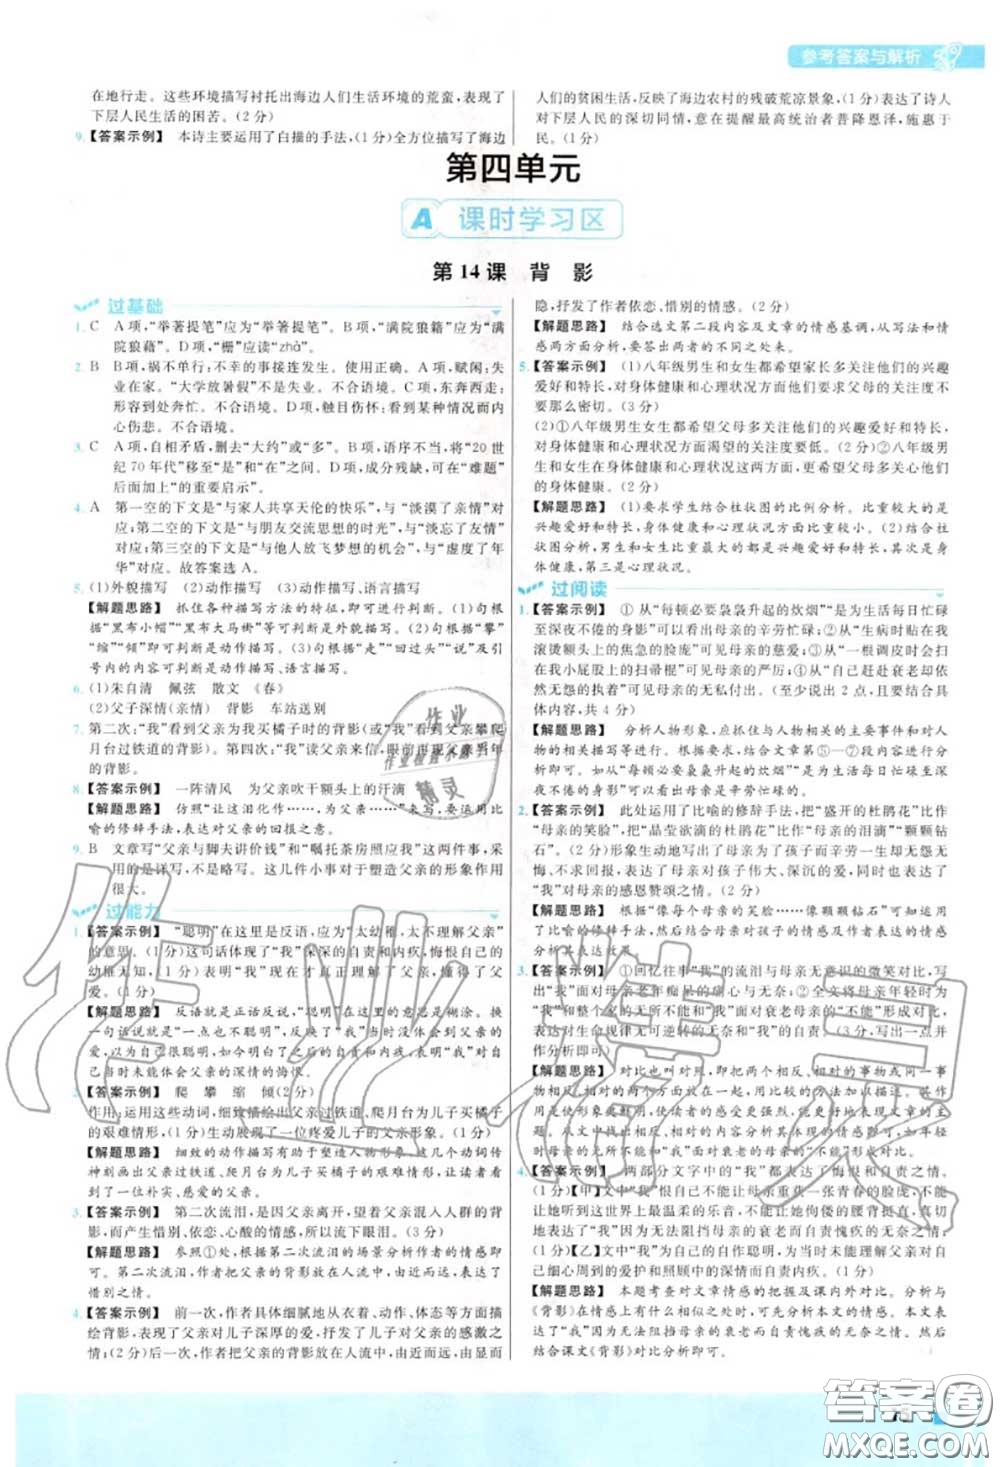 参考答案与解析
在地行走。这些环境描写衬托出海边人们生活环境的荒蛮,表现了
下层人民生活的困苦。(2分)
9.【答案示例】 本诗主要运用了白描的手法,(1分)全方位描写了海边
人们的贫困生活,反映了海边农村的残破荒凉景象,(1分)表达了诗人
对下层人民的深切同情,意在提醒最高统治者普降恩泽,施惠于
民。(1分)
第四单元
A 课时学习区
第14课 背 影
过基础
1. C A项,“举著提笔”应为“举箸提笔”。B项,“满院狼籍”应为“满
院狼藉”。D项,“栅”应读“zhà”。
2. B B项,祸不单行:不幸的事接连发生。使用正确。A项,赋闲:失
业在家。“大学放暑假”不是失业。不合语境。C项,东奔西走:
形容到处奔忙。不合语境。D项,触目伤怀:看到某种情况而内
心伤悲。不合语境。
3. C A项,自相矛盾,删去“大约”或“多”。B项,语序不当,将“20世
纪70年代”移至“是”和“在”之间。D项,成分残缺,可在“难题”
后面加上“的重要启示”。
4. A 第一空的下文是“与家人共享天伦的快乐”,与“淡漠了亲情”对
应;第二空的下文是“与朋友交流思想的时光”,与“淡忘了友情”
对应;第三空的下文是“与他人放飞梦想的机会”,与“虚度了年
华”对应。故答案选A。
5. (1)外貌描写 (2)动作描写 (3)动作描写、语言描写
【解题思路】 抓住各种描写方法的特征,即可进行判断。(1)句根
据“黑布小帽”“黑布大马褂”等可判断是外貌描写。(2)句根据“攀”
“缩”“倾”即可判断是动作描写。(3)句根据“走”“回过头”“说”及引
号内的内容可判断是动作描写、语言描写。
6. (1)朱自清 佩弦 散文 《春》
(2)父子深情(亲情) 背影 车站送别
7. 第二次:“我”看到父亲为我买橘子时的背影(或“我”看到父亲攀爬
月台过铁道的背影)。第四次:“我”读父亲来信,眼前再现父亲当年
的背影。
8. 【答案示例】 一阵清风 为父亲吹干额头上的汗滴
【解题思路】 仿照“让这泪化作……,为父亲……”来写,要运用比
喻的修辞手法,表达对父亲的回报之意。
9. B 文章写“父亲与脚夫讲价钱”和“嘱托茶房照应我”这两件事,采
用的是详写,不是略写。这几件小事对于塑造父亲的形象作用
很大。
过能力
1.【答案示例】 “聪明”在这里是反语,应为“太幼稚,太不理解父亲”
的意思。(1分)这句话体现了“我”深深的自责和内疚,悔恨自己的
幼稚无知,(1分)“我”现在才真正理解了父亲,懂得了父亲的
爱。(1分)
【解题思路】 反语就是正话反说,“聪明”在这里的意思是糊涂。换
一句话说就是“一点也不聪明”,反映了“我”当时没有理解父亲的爱
心,自以为很聪明,如今明白了之后的自责和内疚,这里表达了对自
己当时未能体会父亲的深情的悔恨。
2.【答案示例】 爬 攀 缩 倾(2分)
作用:运用这些动词,细致描绘出父亲过铁道、爬月台为儿子买橘子
的艰难情形,(1分)生动展现了一位疼爱儿子的父亲形象。(1分)
【解题思路】 细致的动作描写有助于塑造人物形象,这几个动词传
神刻画出父亲过铁道、爬月台为儿子买橘子的艰难情形,让读者看
到了一位朴实、慈爱的父亲。
3.【答案示例】 第二次流泪,是因父亲离开,望着父亲混入人群的背
影,而产生惜别、依恋、心酸的情感,所以流下眼泪。(3分)
【解题思路】 参照①处,根据第二次流泪的场景分析作者的情感即
可。第二次流泪,作者把父亲的背影放在人流中,由近而远,表达了
惜别的情感。
4.【答案示例】 前一次,作者具体细腻地从衣着、动作、体态等方面描
绘背影,表现了父亲对儿子深厚的爱,抒发了儿子对父亲的感激之
情;(2分)后一次,作者把父亲的背影放在人流中,由近而远,由显而
隐,抒发了作者依恋、惜别的情感。(2分)
【解题思路】 结合选文第二段内容及文章的情感基调,从写法和情
感两方面分析,要答出两者的不同之处来。
5.【答案示例】 (1)八年级男生和女生都希望家长多关注他们的兴趣
爱好和特长,对身体健康和心理状况方面他们要求父母的关注度不
要那么密切。(3分)
(2)①八年级男生女生都希望父母多关注他们的兴趣爱好和特长,
对身体健康和心理状况方面渴望的关注度要低。(2分)②八年级男
生和女生在身体健康和心理状况这两方面,更希望父母多关心他们的
身体健康。(2分)
【解题思路】 (1)要求学生结合柱状图的比例分析。比重较大的是
兴趣爱好和特长,身体健康和心理状况比重较小。(2)结合柱
状图分析,男生和女生比重最大的都是兴趣爱好和特长,其次是身
体健康,第三是心理状况。
过阅读
1.【答案示例】 ①从“每顿必要袅袅升起的炊烟”“是为生活每日忙碌
至深夜不倦的身影”可以看出母亲的辛劳忙碌;②从“生病时贴在我
滚烫额头上的焦急的脸庞”可见母亲的慈爱;③从“一根调皮时会落
在我小屁股上的扫帚棍”可见母亲的严厉;④从“自己赶赴衰老却依
然怨的怨念”可见母亲的无私。(至少说出2点,且要结合
具体内容,共4分)
【解题思路】 分析人物形象,应抓住与人物相关的主要事件和对人
物的相关描写等进行。根据要求,结合文章第⑤—⑦段的内容进行
分析即可。如从“每顿必要袅袅升起的炊烟”“是为生活每日忙碌至
深夜不倦的身影”可以看出母亲是辛劳忙碌的。
2.【答案示例】 此处运用了比喻的修辞手法,把“盛开的杜鹃花”比作
“母亲的笑脸”,把“晶莹欲滴的杜鹃花”比作“母亲的泪滴”“颗颗钻
石”。(2分)形象生动地写出了母亲为了孩子而辛劳一生却无怨无
悔、不求回报,表达了母亲对孩子伟大、深沉的爱,(1分)同时表达了
“我”对母亲的感恩赞颂之情。(1分)
【解题思路】 根据“像每个母亲的笑脸……像颗颗钻石”可以看出
运用了比喻的修辞手法,再结合母亲对孩子的情感及作者表达的情感
分析效果。
3.【答案示例】 ①回忆往事“我”的流泪与母亲无意识的微笑对比,写
出“我”面对母亲老年痴呆的痛心与无奈;②全文将母亲年轻时为
“我”和整个家的无所不能和“我”面对衰老母亲的“不能”形成对比,
表达对生命规律无可逆转的无奈和“我”的自责。(4分,写出一点并
作分析即可)
【解题思路】 对比也叫对照,是把两种相反、相对的事物或同一事物
相反、相对的两个方面放在一起,用比较的方法加以描述或说明。作
用是使形象更鲜明,使读者的感受更强烈,能更好地表现文章的主题。
根据具体的内容分析其对比的作用即可。如全文将母亲年
轻时的“无所不能”和“我”面对衰老的母亲的“不能”形成对比。
4.【答案示例】 两部分文字中的“我”都表达了悔恨和自责之情。
(1分)【甲】文中“我”恨自己不能让母亲重返一张青春的脸庞,不能
让她听到这世界上最温柔的乐音,不能让她佝偻的腰背挺直,真切
地表达了“我”因为无法阻挡母亲的衰老而自责愧疚的无奈之情。
(1分)【乙】文中“我”为自己的自作聪明,当时未能理解父亲而未体
会到父亲的爱护和照顾中的深情而自责内疚。(1分)
【解题思路】 本题考查对文章情感的把握及课内外对比。分析与
《背影》在情感上有什么相似之处时,可先分析本文的情感。本文表
达了“我”因为无法阻挡母亲的衰老而自责愧疚的无奈之情。然后
结合课文《背影》对比分析即可。
作业
作业检查小助手
精灵
作业精灵
答案圈
MXQE.COM